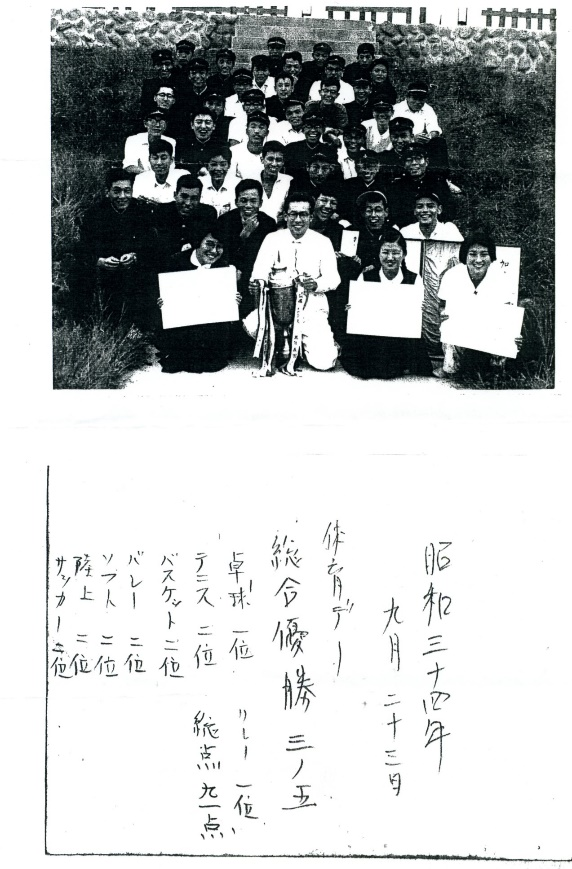 昭和三十四年
九月二十三日
体育デー
総合優勝 三ノ五
卓球 一位
リレー 一位
テニス 二位
総点 九一点
バスケット 二位
バレー 二位
ソフト 二位
陸上 二位
サッカー 二位